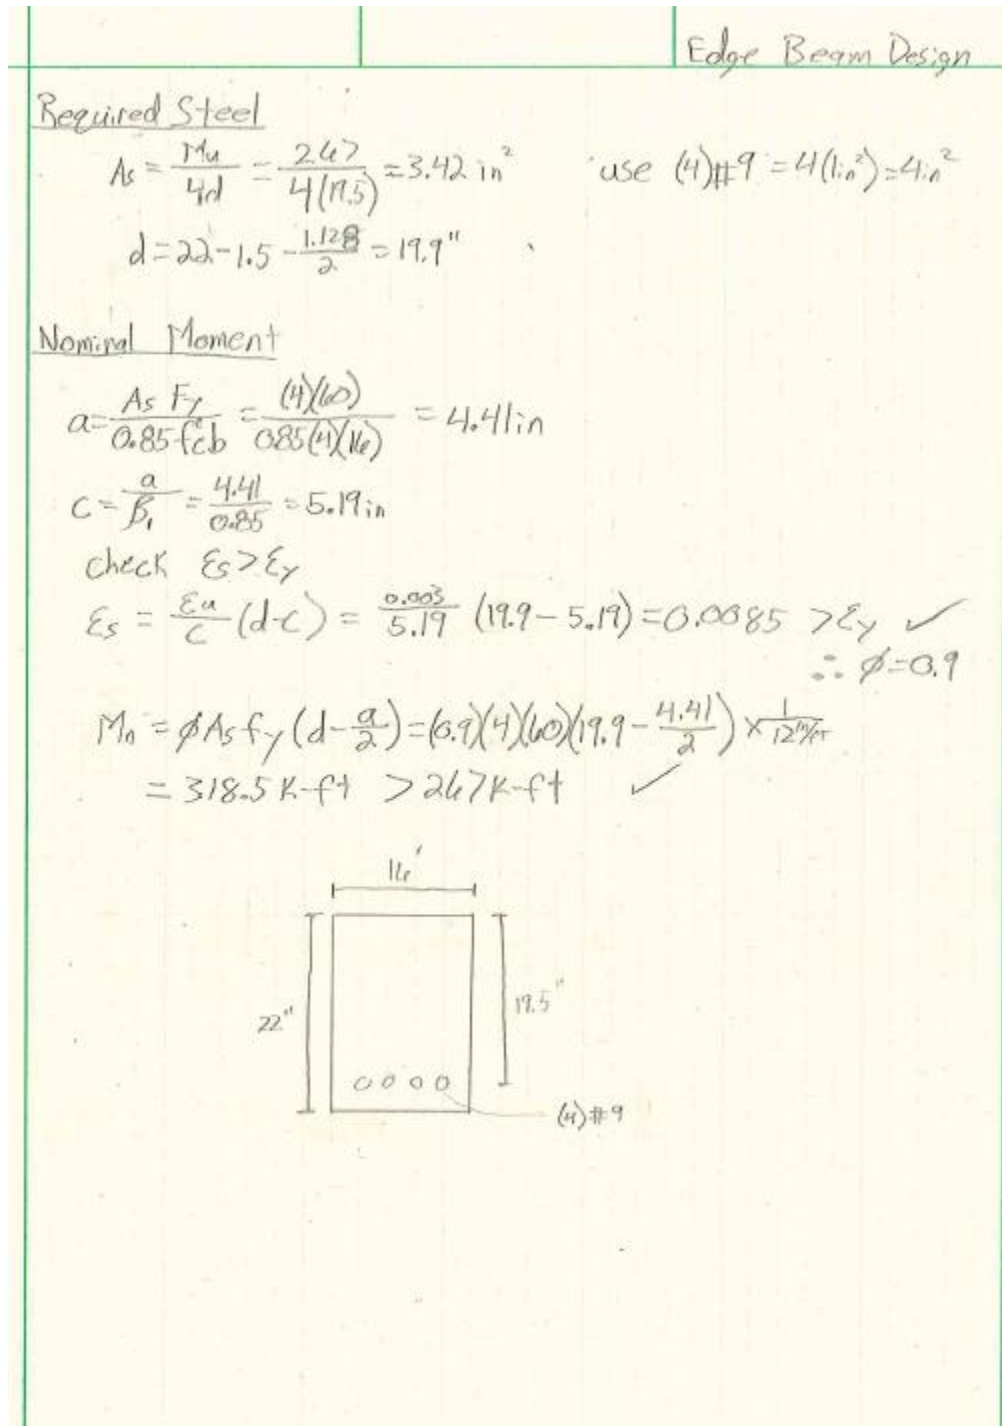 Edge Beam Design
Required Steel
As = Mu/4d = 267/4(19.5) = 3.42 in² use (4)#9 = 4(1in²) = 4in²
d = 22 - 1.5 - 1.128/2 = 19.9"
Nominal Moment
a = As Fy/0.85 f'c b = (4)(60)/0.85(4)(16) = 4.41in
c = a/β₁ = 4.41/0.85 = 5.19in
check εs > εy
εs = εu/c (d-c) = 0.003/5.19 (19.9 - 5.19) = 0.0085 > εy ✓
∴ ø = 0.9
Mn = ø As fy (d - a/2) = (0.9)(4)(60)(19.9 - 4.41/2) × 1/12in/ft
= 318.5 k-ft > 267 k-ft ✓
16'
22"
19.5"
(4)#9